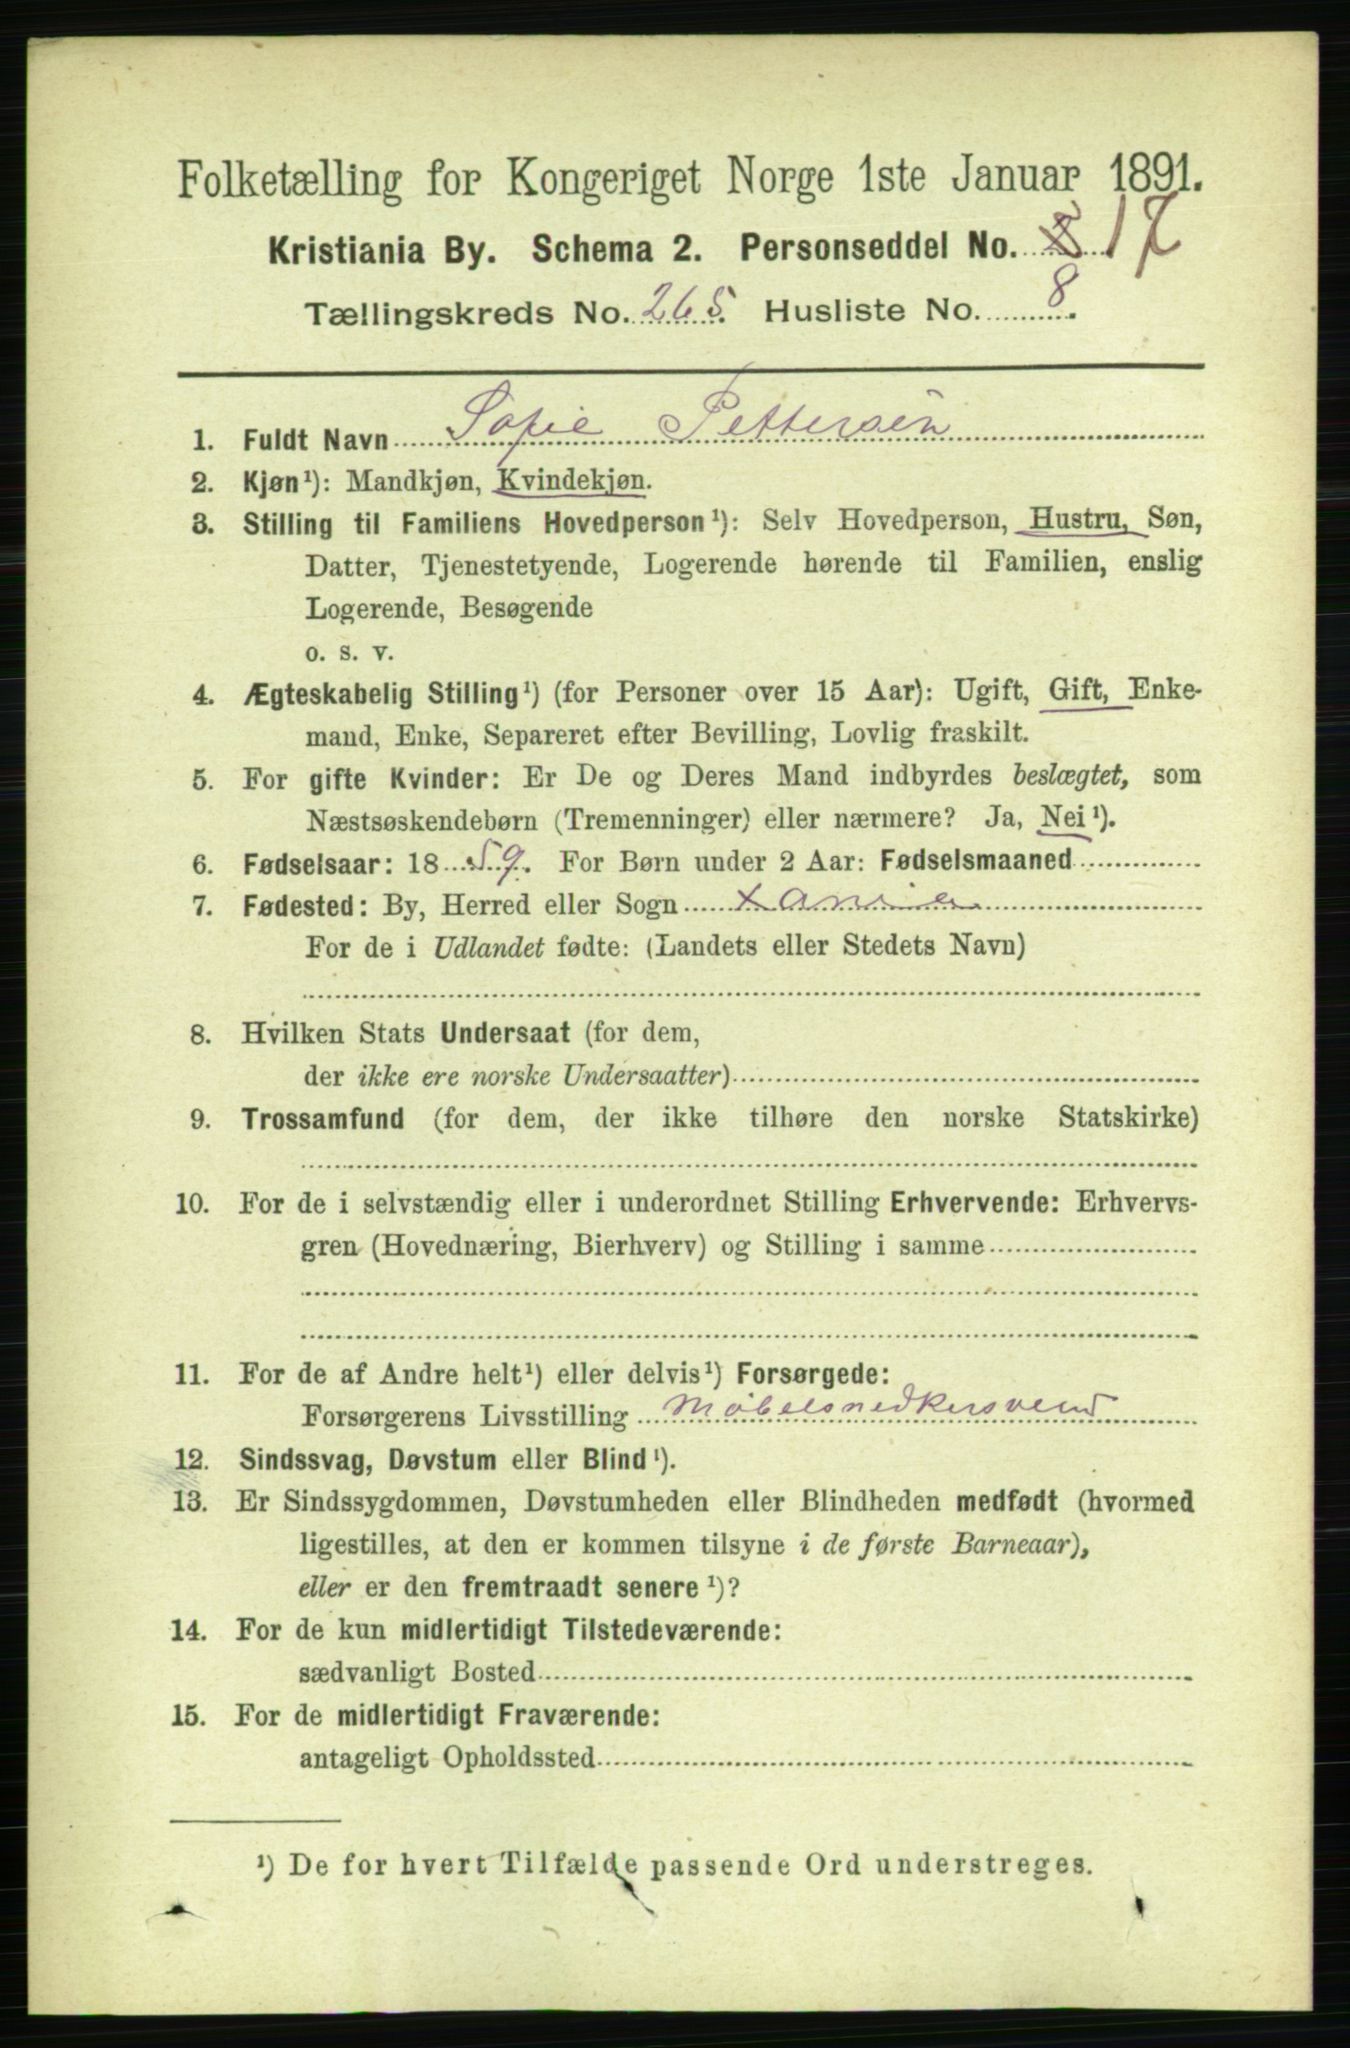 Folketælling for Kongeriget Norge 1ste Januar 1891.
Kristiania By. Schema 2. Personseddel No. 17
Tællingskreds No. 265. Husliste No. 8.
1. Fuldt Navn Sofie Pettersen
2. Kjøn¹): Mandkjøn, Kvindekjøn.
3. Stilling til Familiens Hovedperson¹): Selv Hovedperson, Hustru, Søn,
Datter, Tjenestetyende, Logerende hørende til Familien, enslig
Logerende, Besøgende
o. s. v.
4. Ægteskabelig Stilling¹) (for Personer over 15 Aar): Ugift, Gift, Enke-
mand, Enke, Separeret efter Bevilling, Lovlig fraskilt.
5. For gifte Kvinder: Er De og Deres Mand indbyrdes beslægtet, som
Næstsøskendebørn (Tremenninger) eller nærmere? Ja, Nei¹).
6. Fødselsaar: 1859. For Børn under 2 Aar: Fødselsmaaned
7. Fødested: By, Herred eller Sogn
For de i Udlandet fødte: (Landets eller Stedets Navn)
8. Hvilken Stats Undersaat (for dem,
der ikke ere norske Undersaatter)
9. Trossamfund (for dem, der ikke tilhøre den norske Statskirke)
10. For de i selvstændig eller i underordnet Stilling Erhvervende: Erhvervs-
gren (Hovednæring, Bierhverv) og Stilling i samme
11. For de af Andre helt¹) eller delvis¹) Forsørgede:
Forsørgerens Livsstilling Møbelsnedkersvend
12. Sindssvag, Døvstum eller Blind¹).
13. Er Sindssygdommen, Døvstumheden eller Blindheden medfødt (hvormed
ligestilles, at den er kommen tilsyne i de første Barneaar),
eller er den fremtraadt senere¹)?
14. For de kun midlertidigt Tilstedeværende:
sædvanligt Bosted
15. For de midlertidigt Fraværende:
antageligt Opholdssted
¹) De for hvert Tilfælde passende Ord understreges.